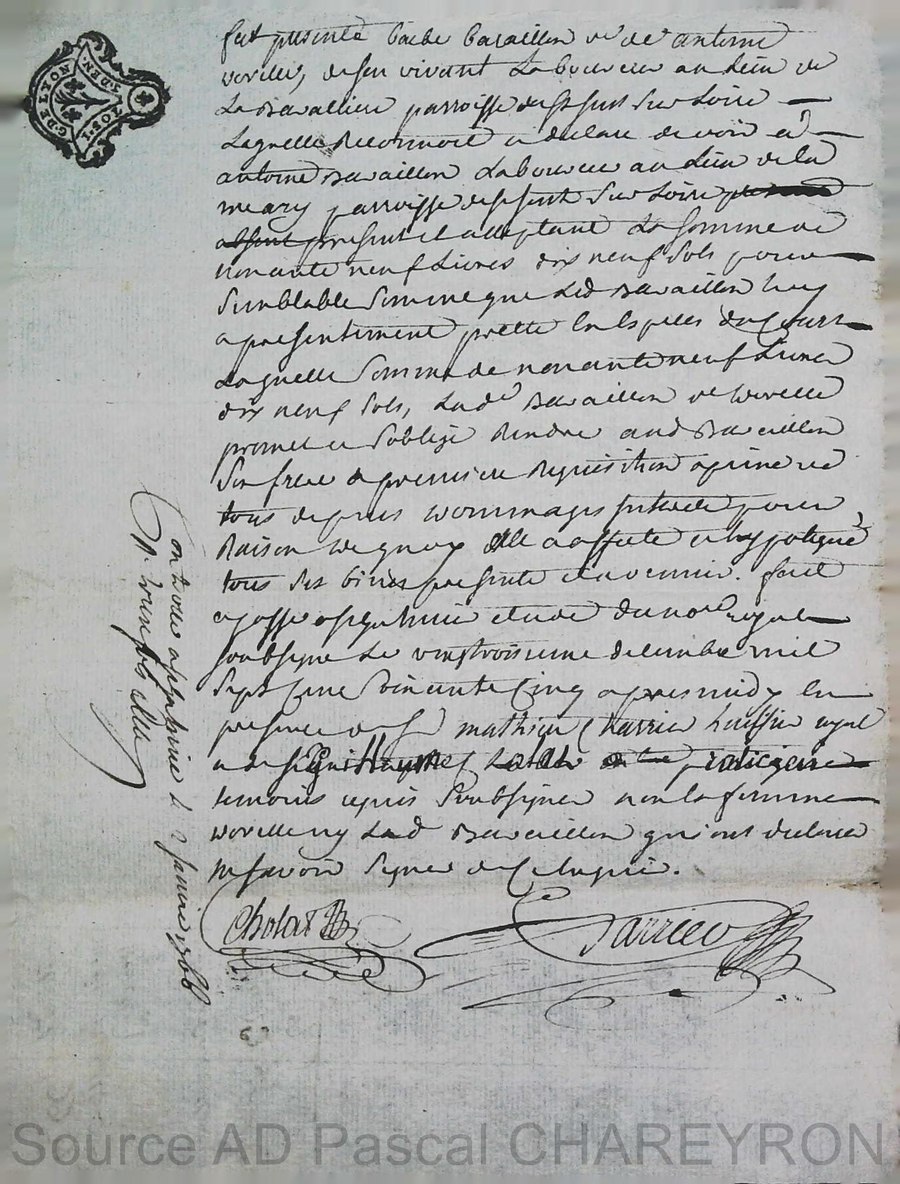 G. DE LYON
2. DEN
1. SOL
fut presente barbe bavaillon ve de antoine
vorille, de son vivant Laboureur au Lieu de
La Bavalliere parroisse de St just Sur Loire
Laquelle Reconnoit et declare devoir a
antoine Bavaillon Laboureur au Lieu de la
meary parroisse de st just Sur Loire
absent present et acceptant La Somme de
nonante neuf Livres dix neuf Sols pour
Semblable Somme que Led Bavaillon Luy
a presentement prette En Especes du Cours
Laquelle Somme de nonante neuf Livres
dix neuf Sols, Lad Bavaillon ve vorille
promet et Soblige Rendre aud Bavaillon
Son frere a premiere Requisition a peine de
tous depens dommages interets pour
Raison de quoy Elle a affecté et hypotequé
tous Ses biens presents et avenir. fait
et passé a St etude du nore royal
soubsigné Le vingtroisieme decembre mil
Sept Cent Cinquante Cinq apres midy En
presence de Sr mathieu Charrier huissier royal
et de Sr Guillaume Cholat praticien
temoins requis Soubsignes non la femme
vorille ny Led Bavaillon qui ont declaré
ne Savoir Signer de Ce Enquis.
Cholat
Charrier
Controllé a St le 2 janvier 1756
R. douze sols
Source AD Pascal CHAREYRON